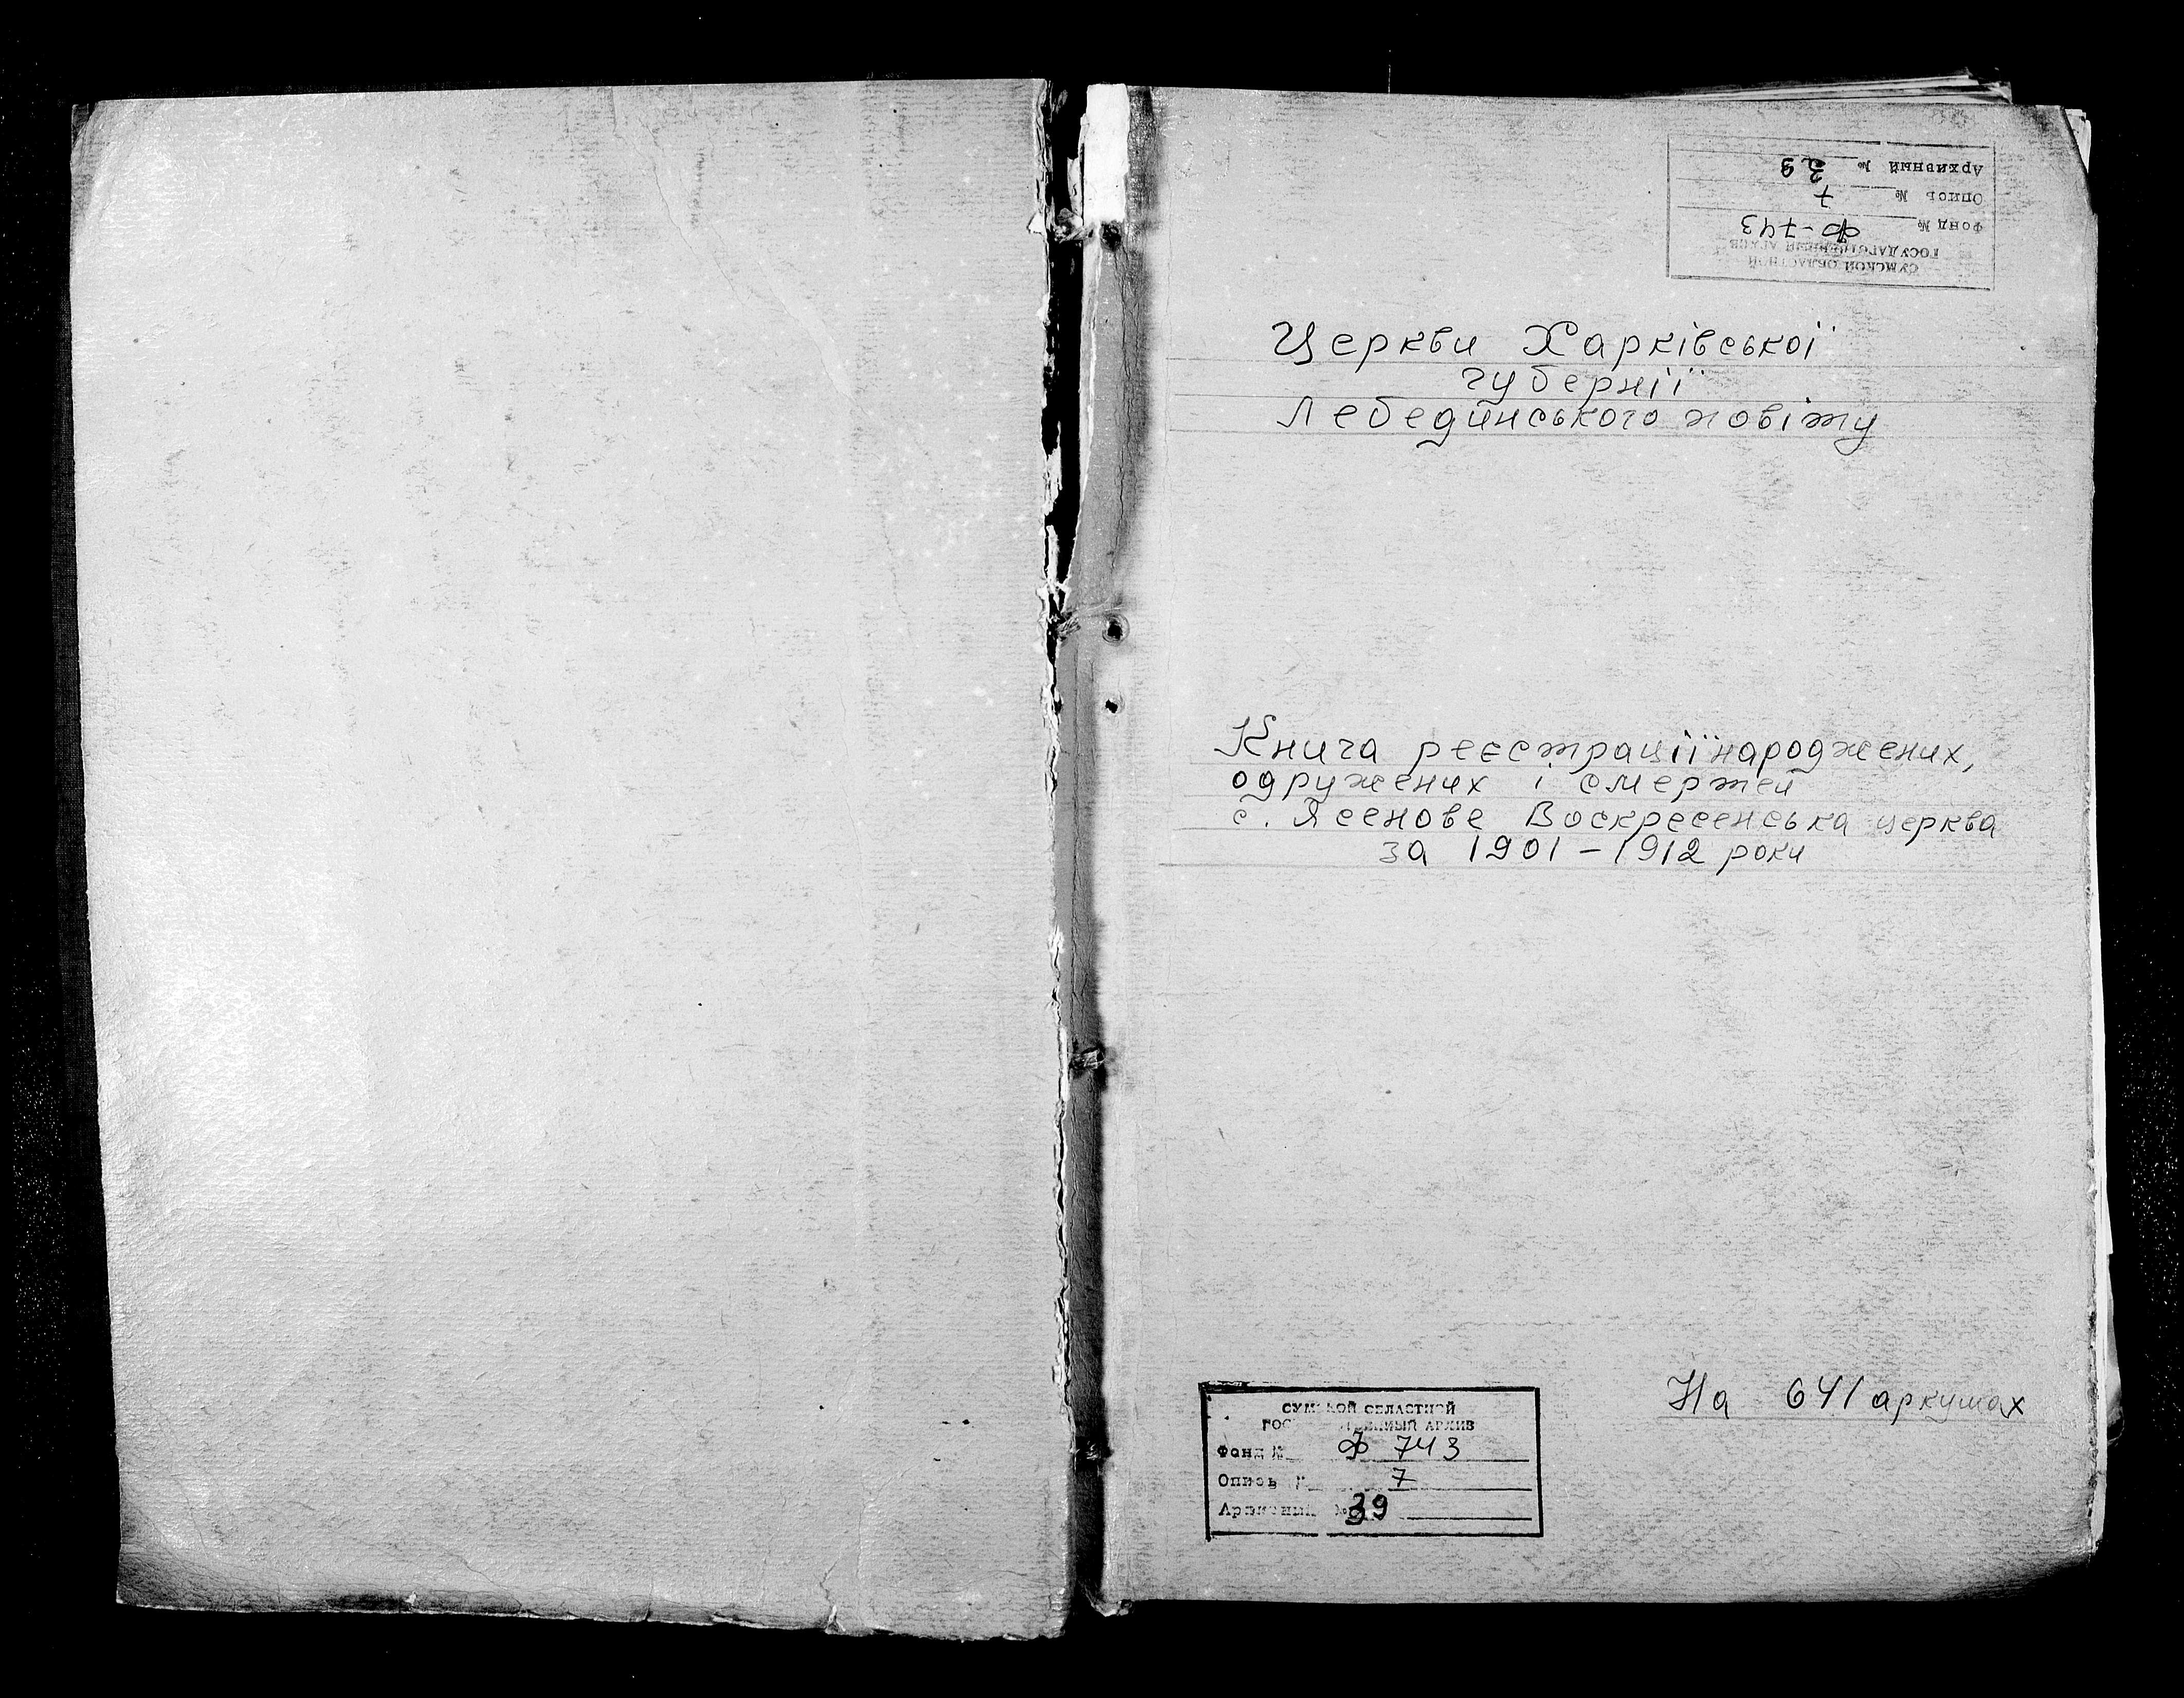 СУМСКОЙ ОБЛАСТНОЙ
ГОСУДАРСТВЕННЫЙ АРХИВ
Фонд № Ф-743
Опись № 7
Архивный № 39
Церкви Харківської
губернії
Лебединського повіту
Книга реєстрації народжених,
одружених і смертей
с. Ясенове Воскресенська церква
за 1901-1912 роки
На 641 аркушах
СУМСКОЙ ОБЛАСТНОЙ
ГОСУДАРСТВЕННЫЙ АРХИВ
Фонд № Ф 743
Опись № 7
Архивный № 39